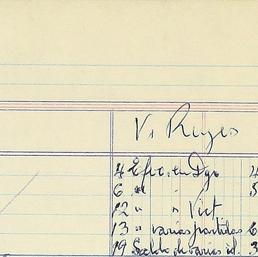 V. Reyes
4 Efvo. en Dgo 4
6 " " 3
12 " " Vict
13 " varias partidas 6
19 Saldo de varias id. 3